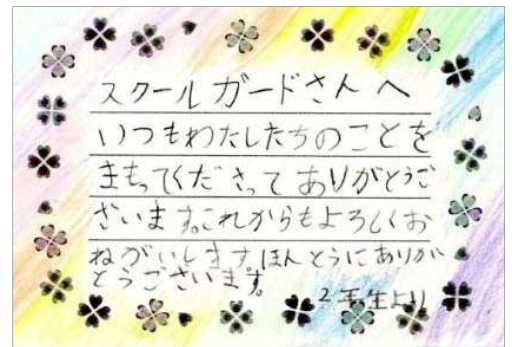 スクールガードさんへ
いつもわたしたちのことを
まもってくださってありがとうご
ざいます。これからもよろしくお
ねがいします。ほんとうにありが
とうございます。
2年生より